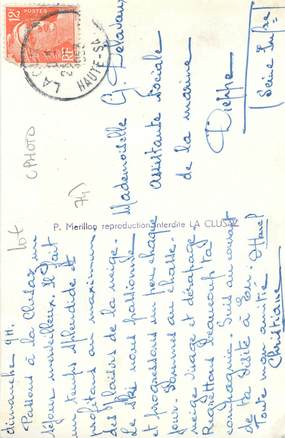 12F
RF
LA C
HAUTE-S
CPHOTO
Lot
74)
P. Merillon reproduction interdite LA CLUSAZ
Mademoiselle G. Delavau
Assistante Sociale
de la marine
Dieppe
(Seine Infre)
dimanche 9H.
Passons à la Clusaz un
séjour merveilleux. Il fait
un temps splendide et
profitons au maximum
des plaisirs de la neige.
Le ski nous passionne
et progressons un peu chaque
jour. Sommes au chasse-
neige virage et dérapage
Regrettons beaucoup ta
compagnie. Suis au courant
de ta visite à Eu.
Toute mon amitié
Christiane